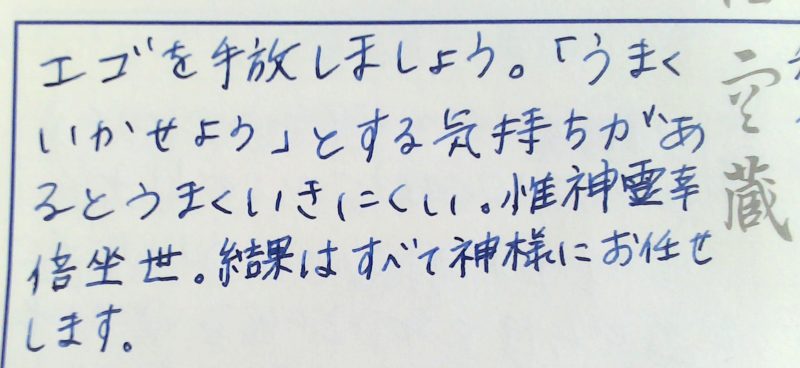 エゴを手放しましょう。「うまく
いかせよう」とする気持ちがあ
るとうまくいきにくい。惟神霊幸
倍坐世。結果はすべて神様にお任せ
します。
空蔵